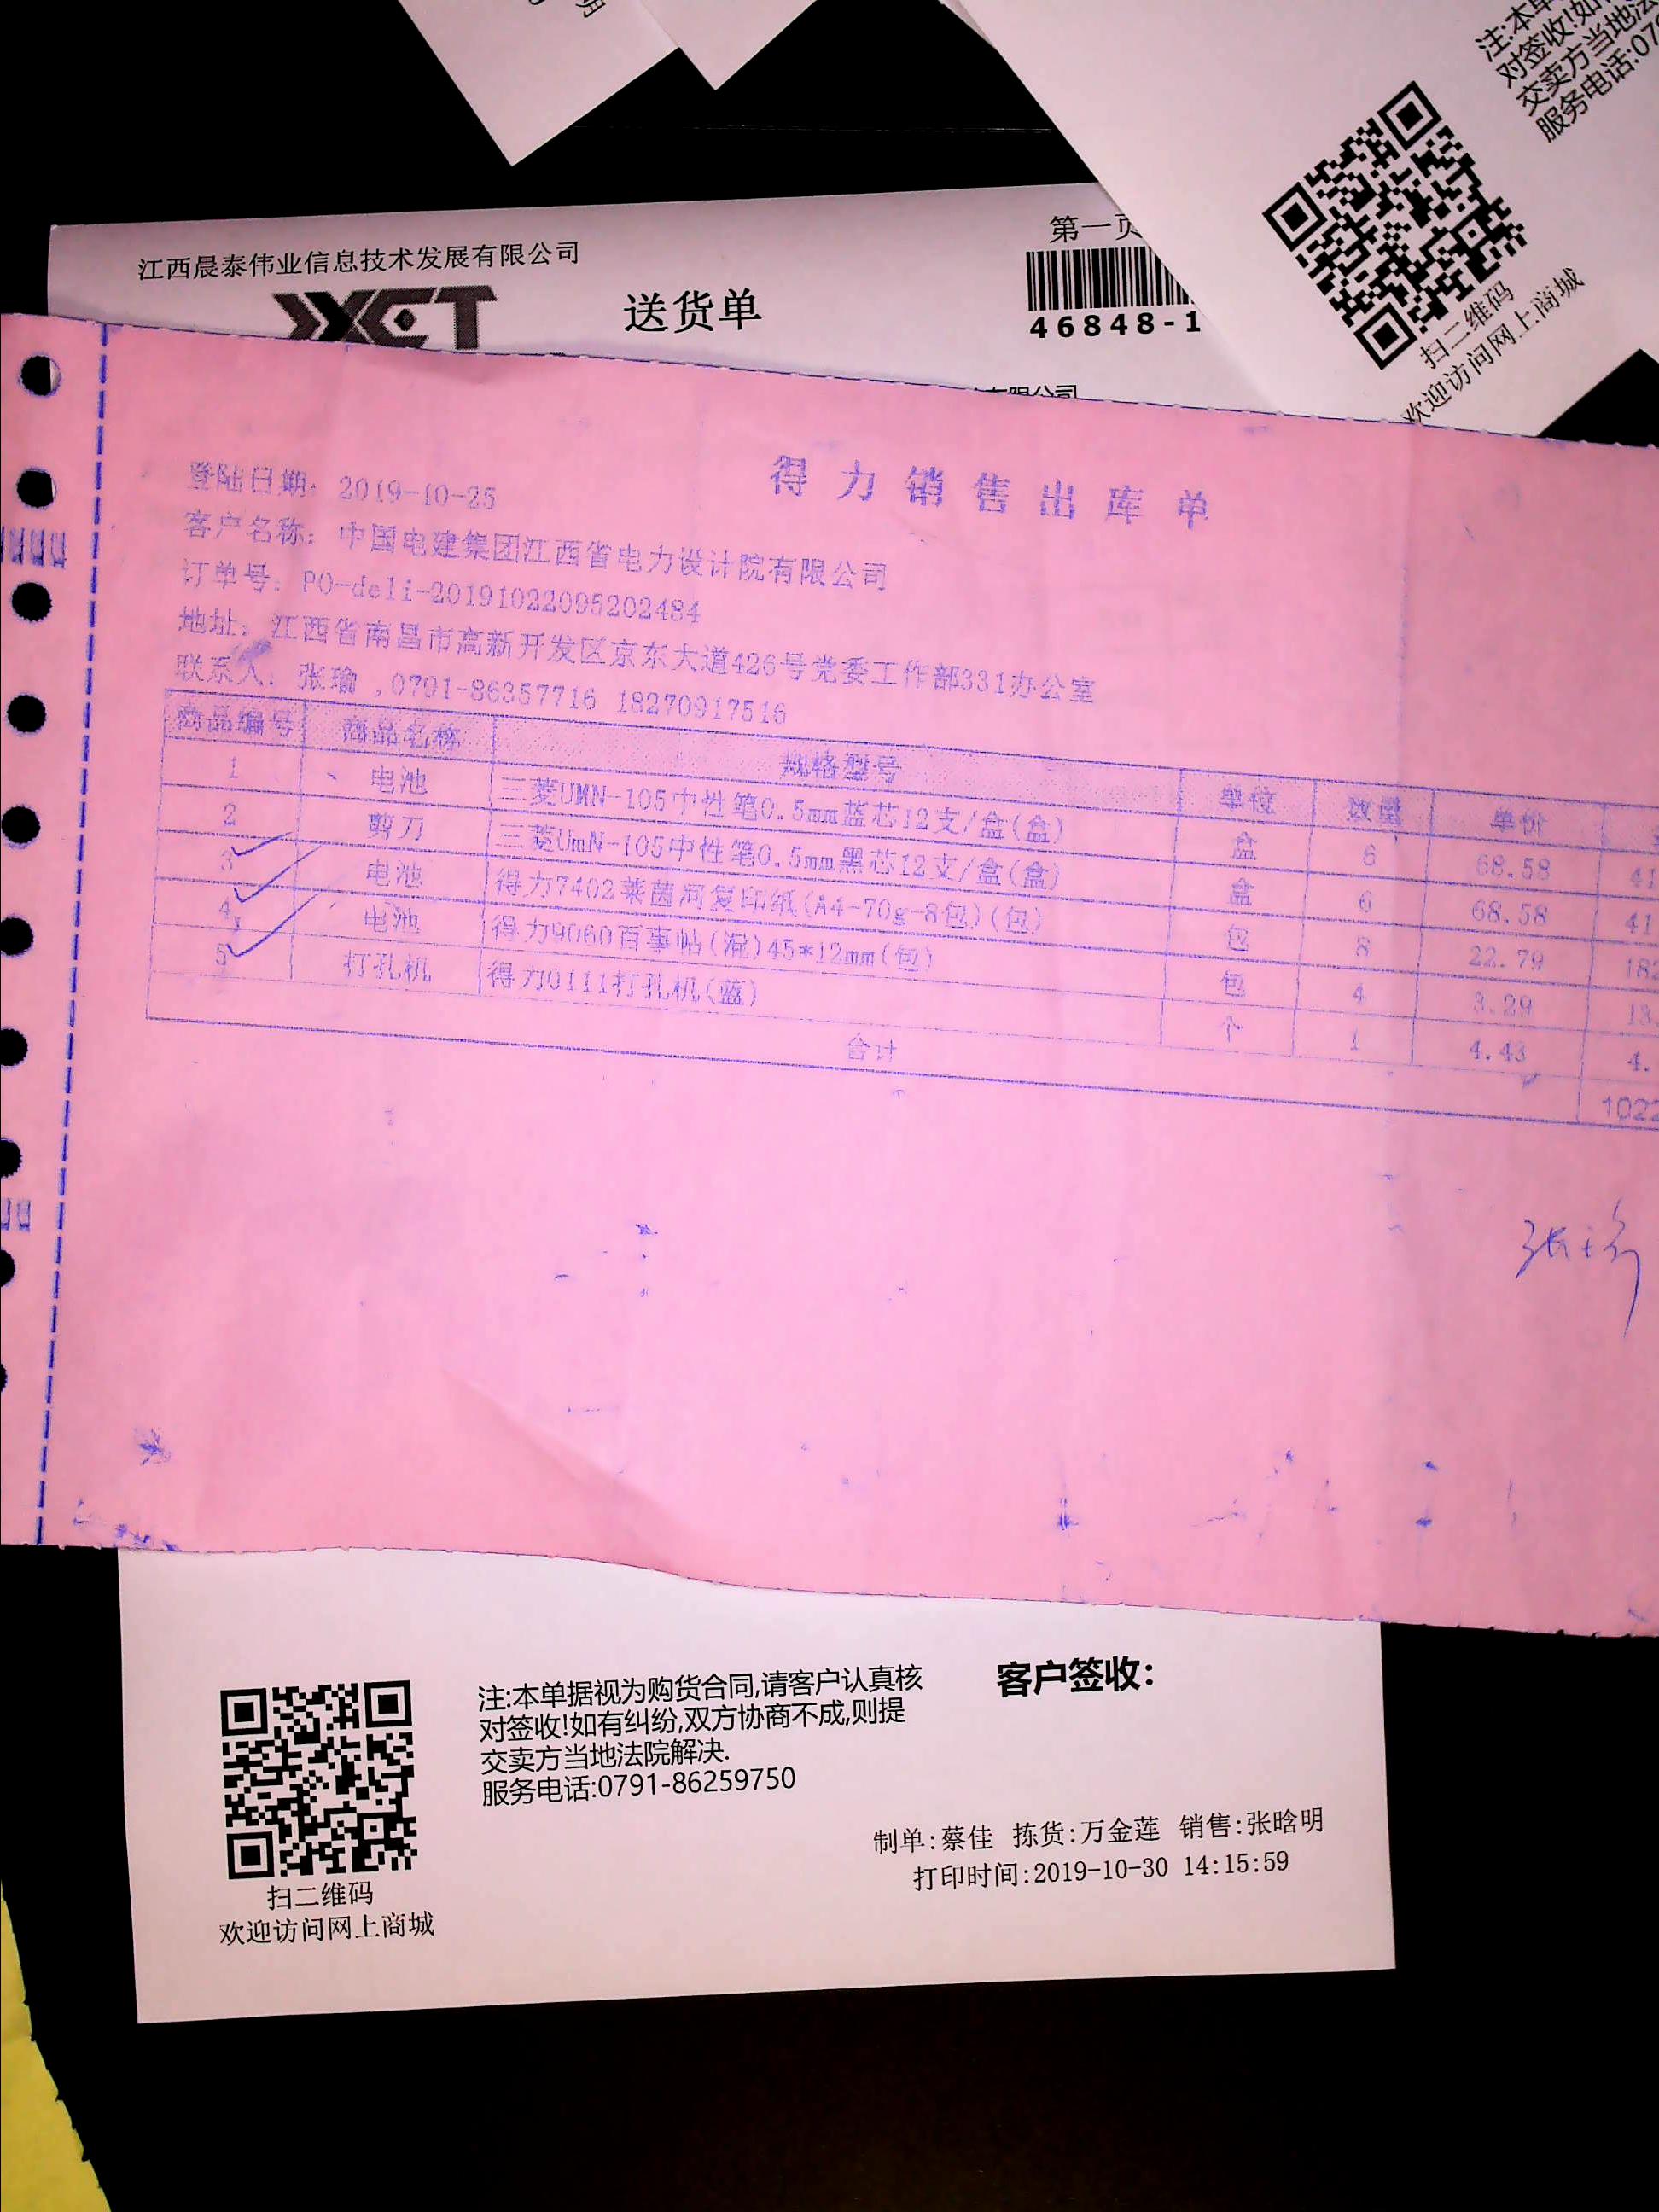 月
注:本单
对签收!如
交卖方当地法
服务电话:07
扫二维码
欢迎访问网上商城
江西晨泰伟业信息技术发展有限公司
第一页
JXCT
送货单
46848-1
有限公司
得力销售出库单
登陆日期: 2019-10-25
客户名称: 中国电建集团江西省电力设计院有限公司
订单号: PO-deli-20191022095202484
地址: 江西省南昌市高新开发区京东大道426号党委工作部331办公室
联系人: 张瑜 ,0791-86357716 18270917516
商品编号 商品名称 规格型号 单位 数量 单价
1 电池 三菱UMN-105中性笔0.5mm蓝芯12支/盒(盒) 盒 6 68.58 41
2 剪刀 三菱UmN-105中性笔0.5mm黑芯12支/盒(盒) 盒 6 68.58 41
3 电池 得力7402莱茵河复印纸(A4-70g-8包)(包) 包 8 22.79 182
4 电池 得力9060百事帖(混)45*12mm(包) 包 4 3.29 13.
5 打孔机 得力0111打孔机(蓝) 个 1 4.43 4.
合计 1022
张瑜
注:本单据视为购货合同,请客户认真核
对签收!如有纠纷,双方协商不成,则提
交卖方当地法院解决.
服务电话:0791-86259750
客户签收:
扫二维码
欢迎访问网上商城
制单:蔡佳 拣货:万金莲 销售:张晗明
打印时间:2019-10-30 14:15:59